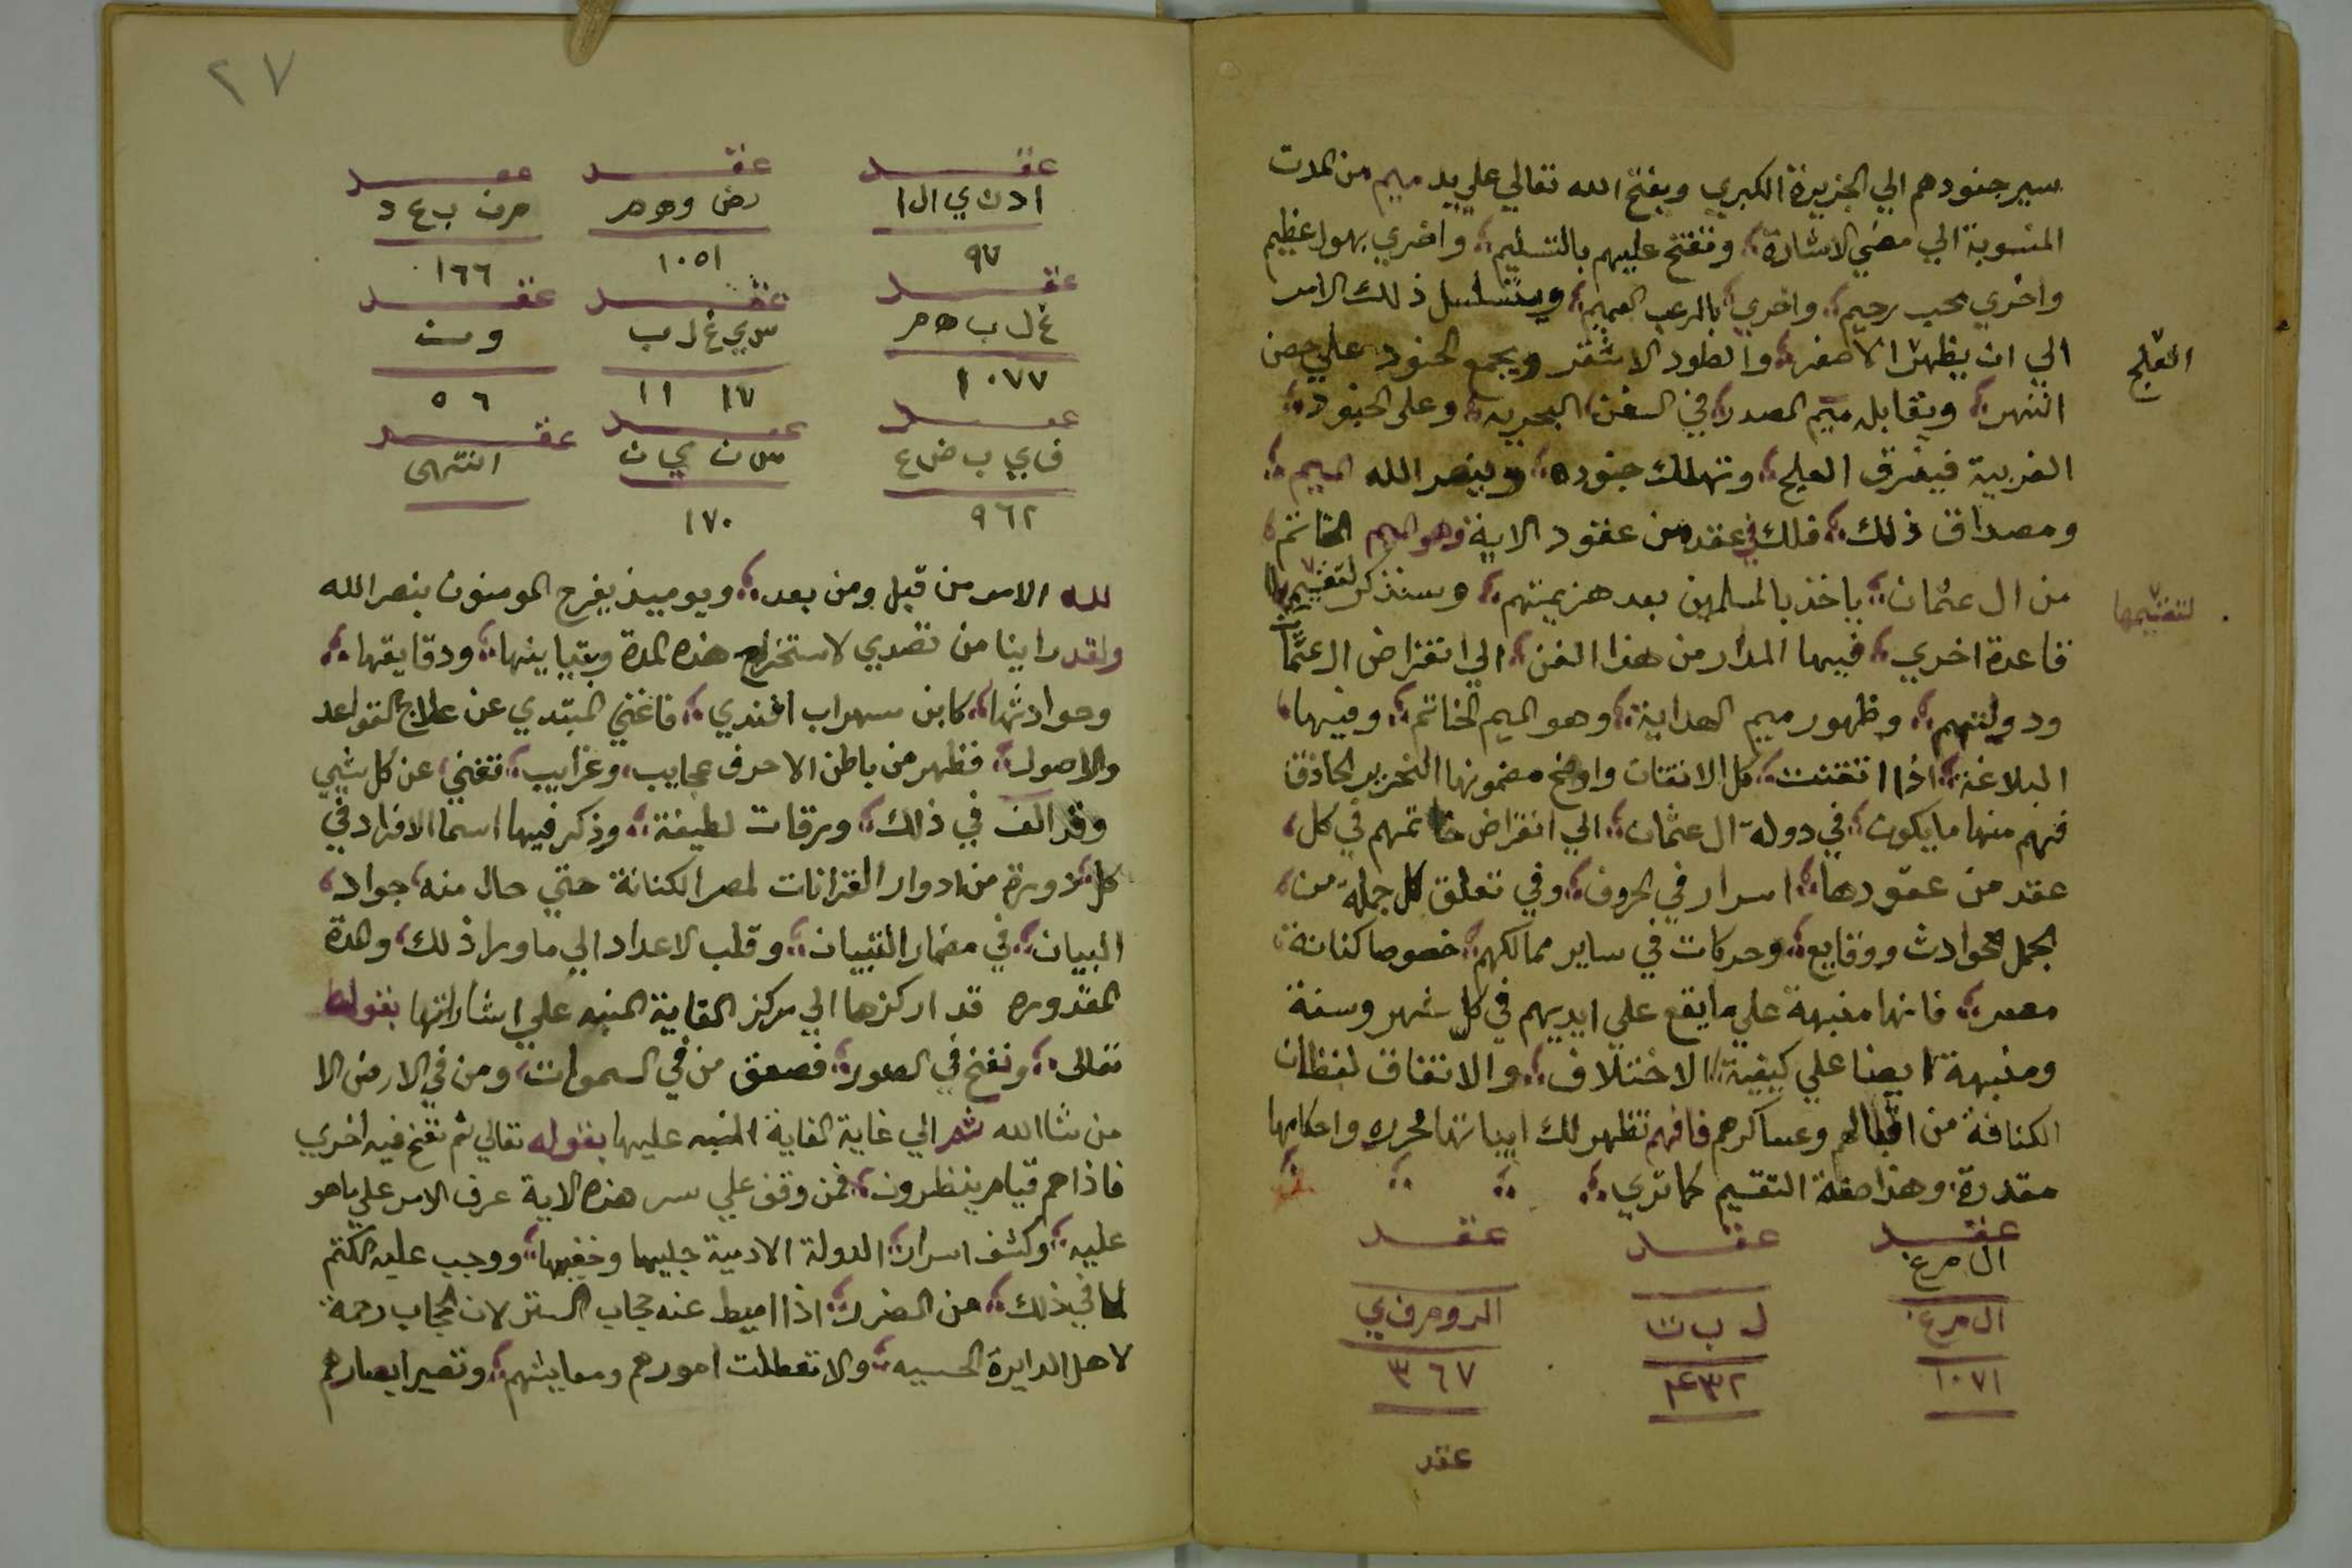 سير جنودهم الي الجزيرة الكبري ويفتح الله تعالي علي يد ميم من المدت
المنسوبة الي مضي الاشارة وتفتح عليهم بالتسليم واخري بهول عظيم
واخري بحب رحيم واخري بالرعب العميم ويتسلسل ذلك الامر
الي ان يظهر الاصفر والطود الاشقر ويجمع الجنود علي حصن
العلج
النهر ويقابل ميم الصدر في السفن البحريه وعلى الجنود
الغربية فيغرق العلج وتهلك جنوده وينصر الله الميم
ومصداق ذلك فلك في عقد من عقود الاية وهو الميم الخاتم
من ال عثمان ياخذ بالمسلمين بعد هزيمتهم وسنذكر لتقسيمها
لتقسيمها
قاعدة اخري فيها المدار من هذا الفن الي انقراض ال عثما
ودولتهم وظهور ميم الهداية وهو الميم الخاتم وفيها
البلاغة اذا اتقنت كل الاتقان واوضح مضمونها النحرير الحاذق
فهم منها مايكون في دولة ال عثمان الي انقراض خاتمهم في كل
عقد من عقودها اسرار في الحروف وفي تعلق كل جملة من
الجمل حوادث ووقايع وحركات في ساير ممالكهم خصوصا كنانة
مصر فانها منبهة علي مايقع علي ايديهم في كل شهر وسنة
ومنبهة ايضا علي كيفية الاختلاف والاتفاق لفظان
الكنافة من اقبالهم وعساكرهم فافهم تظهر لك ابياتها محرره واحكامها
مقدرة وهذا صفة التقسيم كما تري
عقد عقد عقد
ال م رغ
ال م رغ ل ب ت الد وم ف ي
١٠٧١ ٤٣٢ ٣٦٧
عقد
٢٧
عقد عقد عقد
ا د ن ي ال ا رض وه م م ن ب ع د
٩٧ ١٠٥١ ١٦٦
عقد عقد عقد
غ ل ب ه م س ي غ ل ب و م ن
١٠٧٧ ١١ ١٧ ٥٦
عقد عقد عقد
ف ي ب ض ع س ن ي ن انتهى
٩٦٢ ١٧٠
لله الامر من قبل ومن بعد ويوميذ يفرح المومنون بنصر الله
ولقد راينا من تصدي لاستخراج هذه المدة وتباينها ودقايقها
وحوادثها كابن سهراب افندي فاغني المبتدي عن علاج القواعد
والاصول فظهر من باطن الاحرف عجايب وغرايب تغني عن كل شيي
وقد الف في ذلك ورقات لطيفة وذكر فيها اسما الافراد في
كل دورة من ادوار القرانات لمصر الكنانة حتي حال منه جواد
البيان في مضمار التبيان وقلب الاعداد الي ماورا ذلك وهدة
المقدوره قد اركزها الي مركز الغاية المنبه علي اشاراتها بقوله
تعالى ونفخ في الصور فصعق من في السموات ومن في الارض الا
من شا الله ثم الي غاية الغاية المنبه عليها بقوله تعالي ثم نفخ فيه اخري
فاذا هم قيام ينظرون فمن وقف علي سر هذه الاية عرف الامر علي ماهو
عليه وكشف اسرار الدولة الادمية جليها وخفيها ووجب عليه الكتم
لما في ذلك من الضرر اذا اميط عنه حجاب الستر لان الحجاب رحمة
لاهل الدايرة الحسيه والا تعطلت امورهم ومعايشهم وتصير ابصارهم